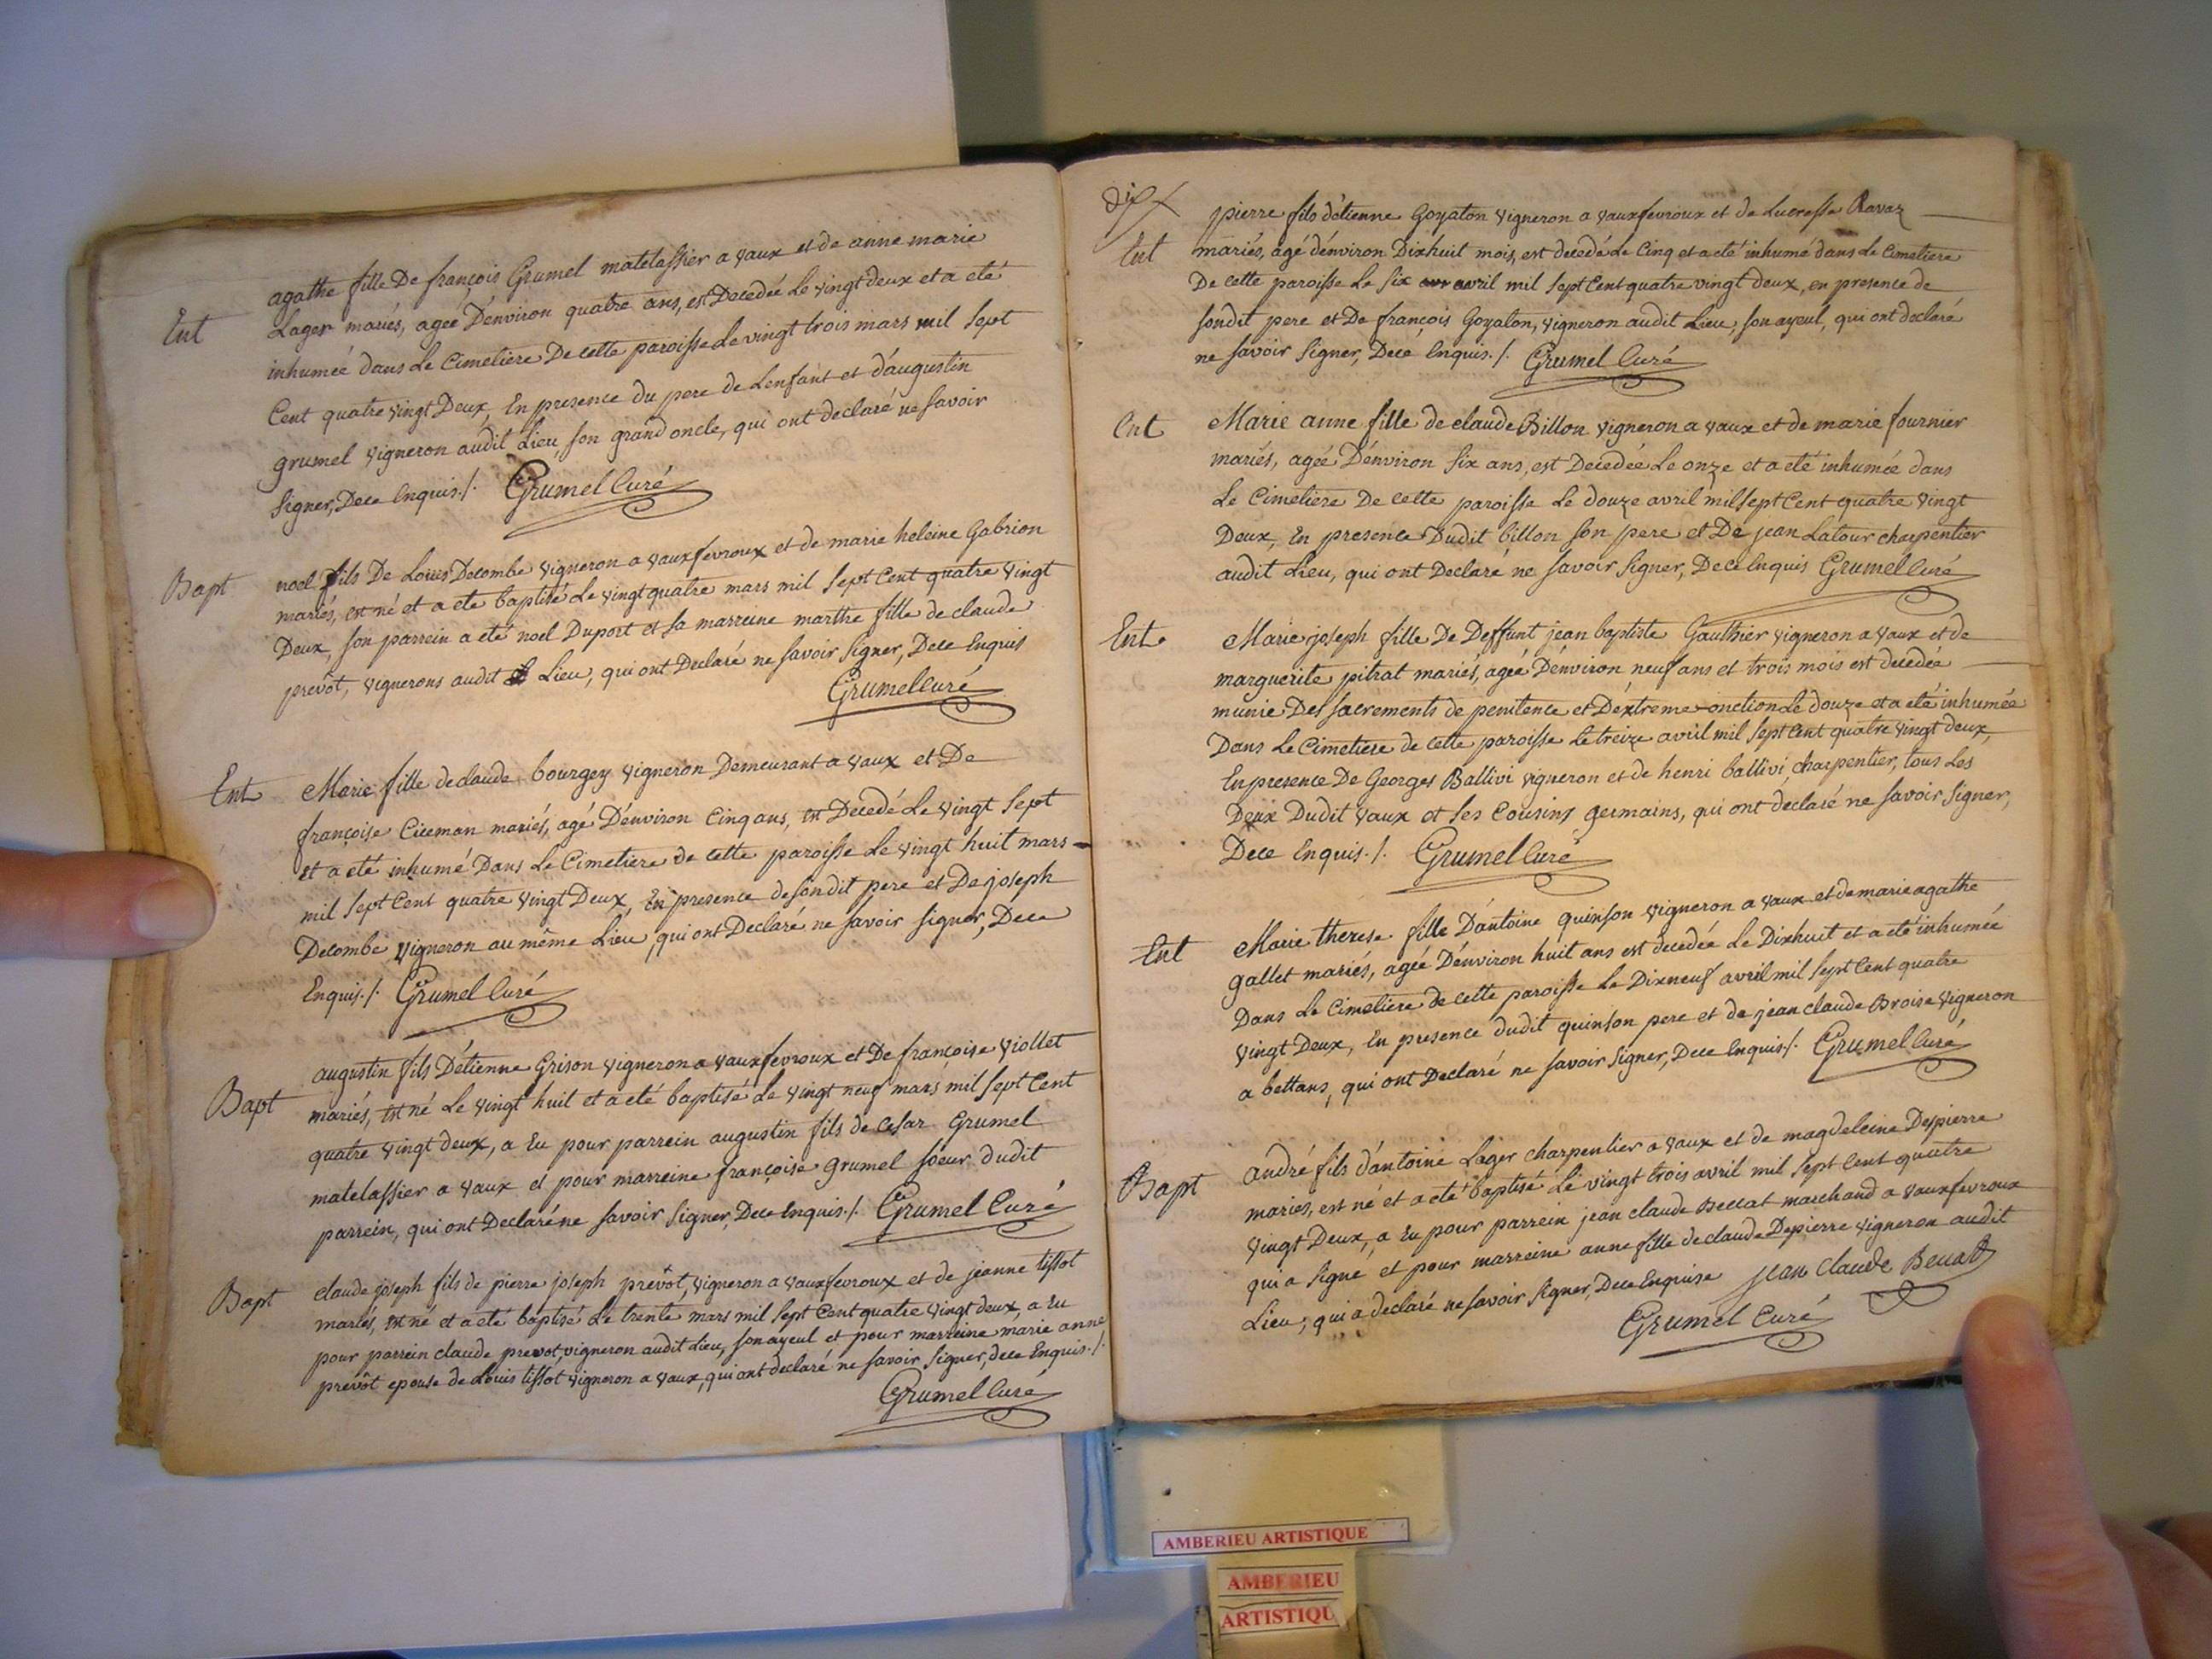 Ent
agathe fille De françois Grumel matelassier a vaux et de anne marie
Lager mariés, ageé D'environ quatre ans, est Decedeé Le vingt deux et a eté
inhumeé dans Le Cimetiere De cette paroisse Le vingt trois mars mil sept
Cent quatre vingt Deux, En presence du pere de L'enfant et d'augustin
grumel vigneron audit Lieu, son grand oncle, qui ont declaré ne savoir
signer, Dece Enquis./. Grumel Curé
Bapt
noel fils De Louis Decombe vigneron a vauxfevroux et de marie heleine Gabrion
mariés, est né et a ete baptisé Le vingt quatre mars mil sept Cent quatre vingt
Deux, son parrein a eté noel Duport et sa marreine marthe fille de claude
prevôt, vignerons audit Lieu, qui ont Declaré ne savoir signer, Dece Enquis
Grumel Curé
Ent
Marie fille de claude bourgey vigneron Demeurant a vaux et De
françoise Citeman mariés, agé D'environ Cinq ans, est Decedé Le vingt sept
et a eté inhumé Dans Le Cimetiere de cette paroisse Le vingt huit mars
mil sept Cent quatre vingt Deux, En presence de sondit pere et De joseph
Decombe vigneron au même Lieu, qui ont Declaré ne savoir signer, Dece
Enquis./. Grumel Curé
Bapt
augustin fils D'etienne Grison vigneron a vauxfevroux et De françoise Viollet
mariés, est né Le vingt huit et a eté baptisé Le vingt neuf mars mil sept Cent
quatre vingt deux, a Eu pour parrein augustin fils de Cesar Grumel
matelassier a vaux et pour marreine françoise grumel soeur dudit
parrein, qui ont Declaré ne savoir signer, Dece Enquis./. Grumel Curé
Bapt
claude joseph fils de pierre joseph prevôt, vigneron a vauxfevroux et de jeanne tissot
mariés, est né et a eté baptisé Le trente mars mil sept Cent quatre vingt deux, a Eu
pour parrein claude prevot, vigneron audit Lieu, son ayeul et pour marreine marie anne
prevôt epouse de Louis tissot vigneron a vaux, qui ont declaré ne savoir signer, dece Enquis./.
Grumel Curé
dix
Ent
pierre fils d'etienne Goyaton vigneron a vauxfevroux et de Lucresse Ravaz
mariés, agé d'environ Dixhuit mois, est decedé Le Cinq et a eté inhumé dans Le Cimetiere
De cette paroisse Le six avril mil sept Cent quatre vingt deux, en presence de
sondit pere et De françois Goyaton, vigneron audit Lieu, son ayeul, qui ont declaré
ne savoir signer, Dece Enquis./. Grumel Curé
Ent
Marie anne fille de claude Billon vigneron a vaux et de marie fournier
mariés, ageé D'environ six ans, est Decedeé Le onze et a eté inhumée dans
Le Cimetiere De cette paroisse Le douze avril mil sept Cent quatre vingt
Deux, En presence Dudit billon son pere et De jean Latour charpentier
audit Lieu, qui ont Declaré ne savoir signer, Dece Enquis Grumel Curé
Ent.
Marie joseph fille De Deffunt jean baptiste Gauthier vigneron a vaux et de
marguerite pitrat mariés, ageé D'environ neuf ans et trois mois est decedeé
munie Des sacrements de penitence et D'extreme-onction Le douze et a eté inhumée
Dans Le Cimetiere de cette paroisse Le treize avril mil sept Cent quatre vingt deux,
En presence De Georges Ballivi vigneron et de henri ballivi charpentier, tous Les
Deux Dudit vaux et ses Cousins germains, qui ont declaré ne savoir signer,
Dece Enquis./. Grumel Curé
Ent
Marie therese fille D'antoine quinson vigneron a vaux et de marie agathe
gallet mariés, ageé D'environ huit ans est decedée Le Dixhuit et a eté inhumeé
Dans Le Cimetiere de cette paroisse Le Dixneuf avril mil sept Cent quatre
vingt Deux, En presence dudit quinson pere et de jean claude Broise vigneron
a bettans, qui ont Declaré ne savoir signer, Dece Enquis./. Grumel Curé
Bapt
andré fils d'antoine Lager charpentier a vaux et de magdeleine Depierre
mariés, est né et a eté baptisé Le vingt trois avril mil sept Cent quatre
vingt Deux, a Eu pour parrein jean claude Beccat marchand a vauxfevroux
qui a signe et pour marreine anne fille de claude Depierre vigneron audit
Lieu, qui a declaré ne savoir signer, Dece Enquise jean Claude Beccat
Grumel Curé
AMBERIEU ARTISTIQUE
AMBERIEU
ARTISTIQU